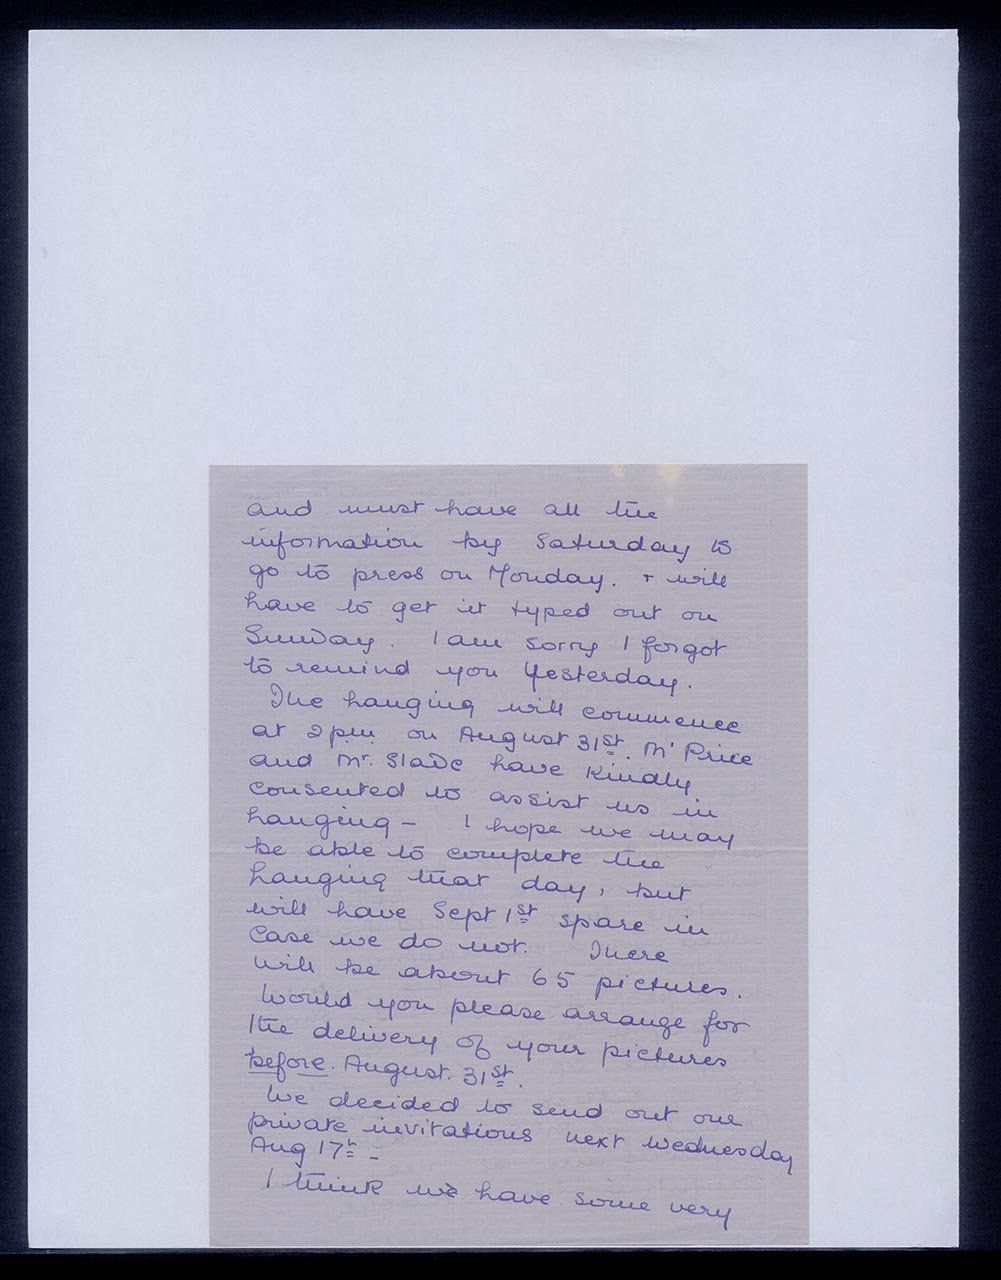 and must have all the
information by Saturday to
go to press on Monday. + will
have to get it typed out on
Sunday. I am sorry I forgot
to remind you yesterday.
The hanging will commence
at 2 pm on August 31st. Mr Price
and Mr. Slade have kindly
consented to assist us in
hanging – I hope we may
be able to complete the
hanging that day, but
will have Sept 1st spare in
case we do not. There
will be about 65 pictures.
Would you please arrange for
the delivery of your pictures
before. August. 31st.
We decided to send out our
private invitations next Wednesday
Aug 17th –
I think we have some very